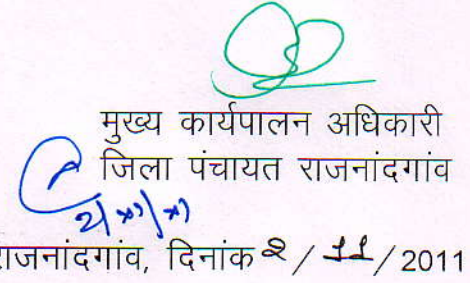 मुख्य कार्यपालन अधिकारी
जिला पंचायत राजनांदगांव
राजनांदगांव, दिनांक २ / 11 / 2011